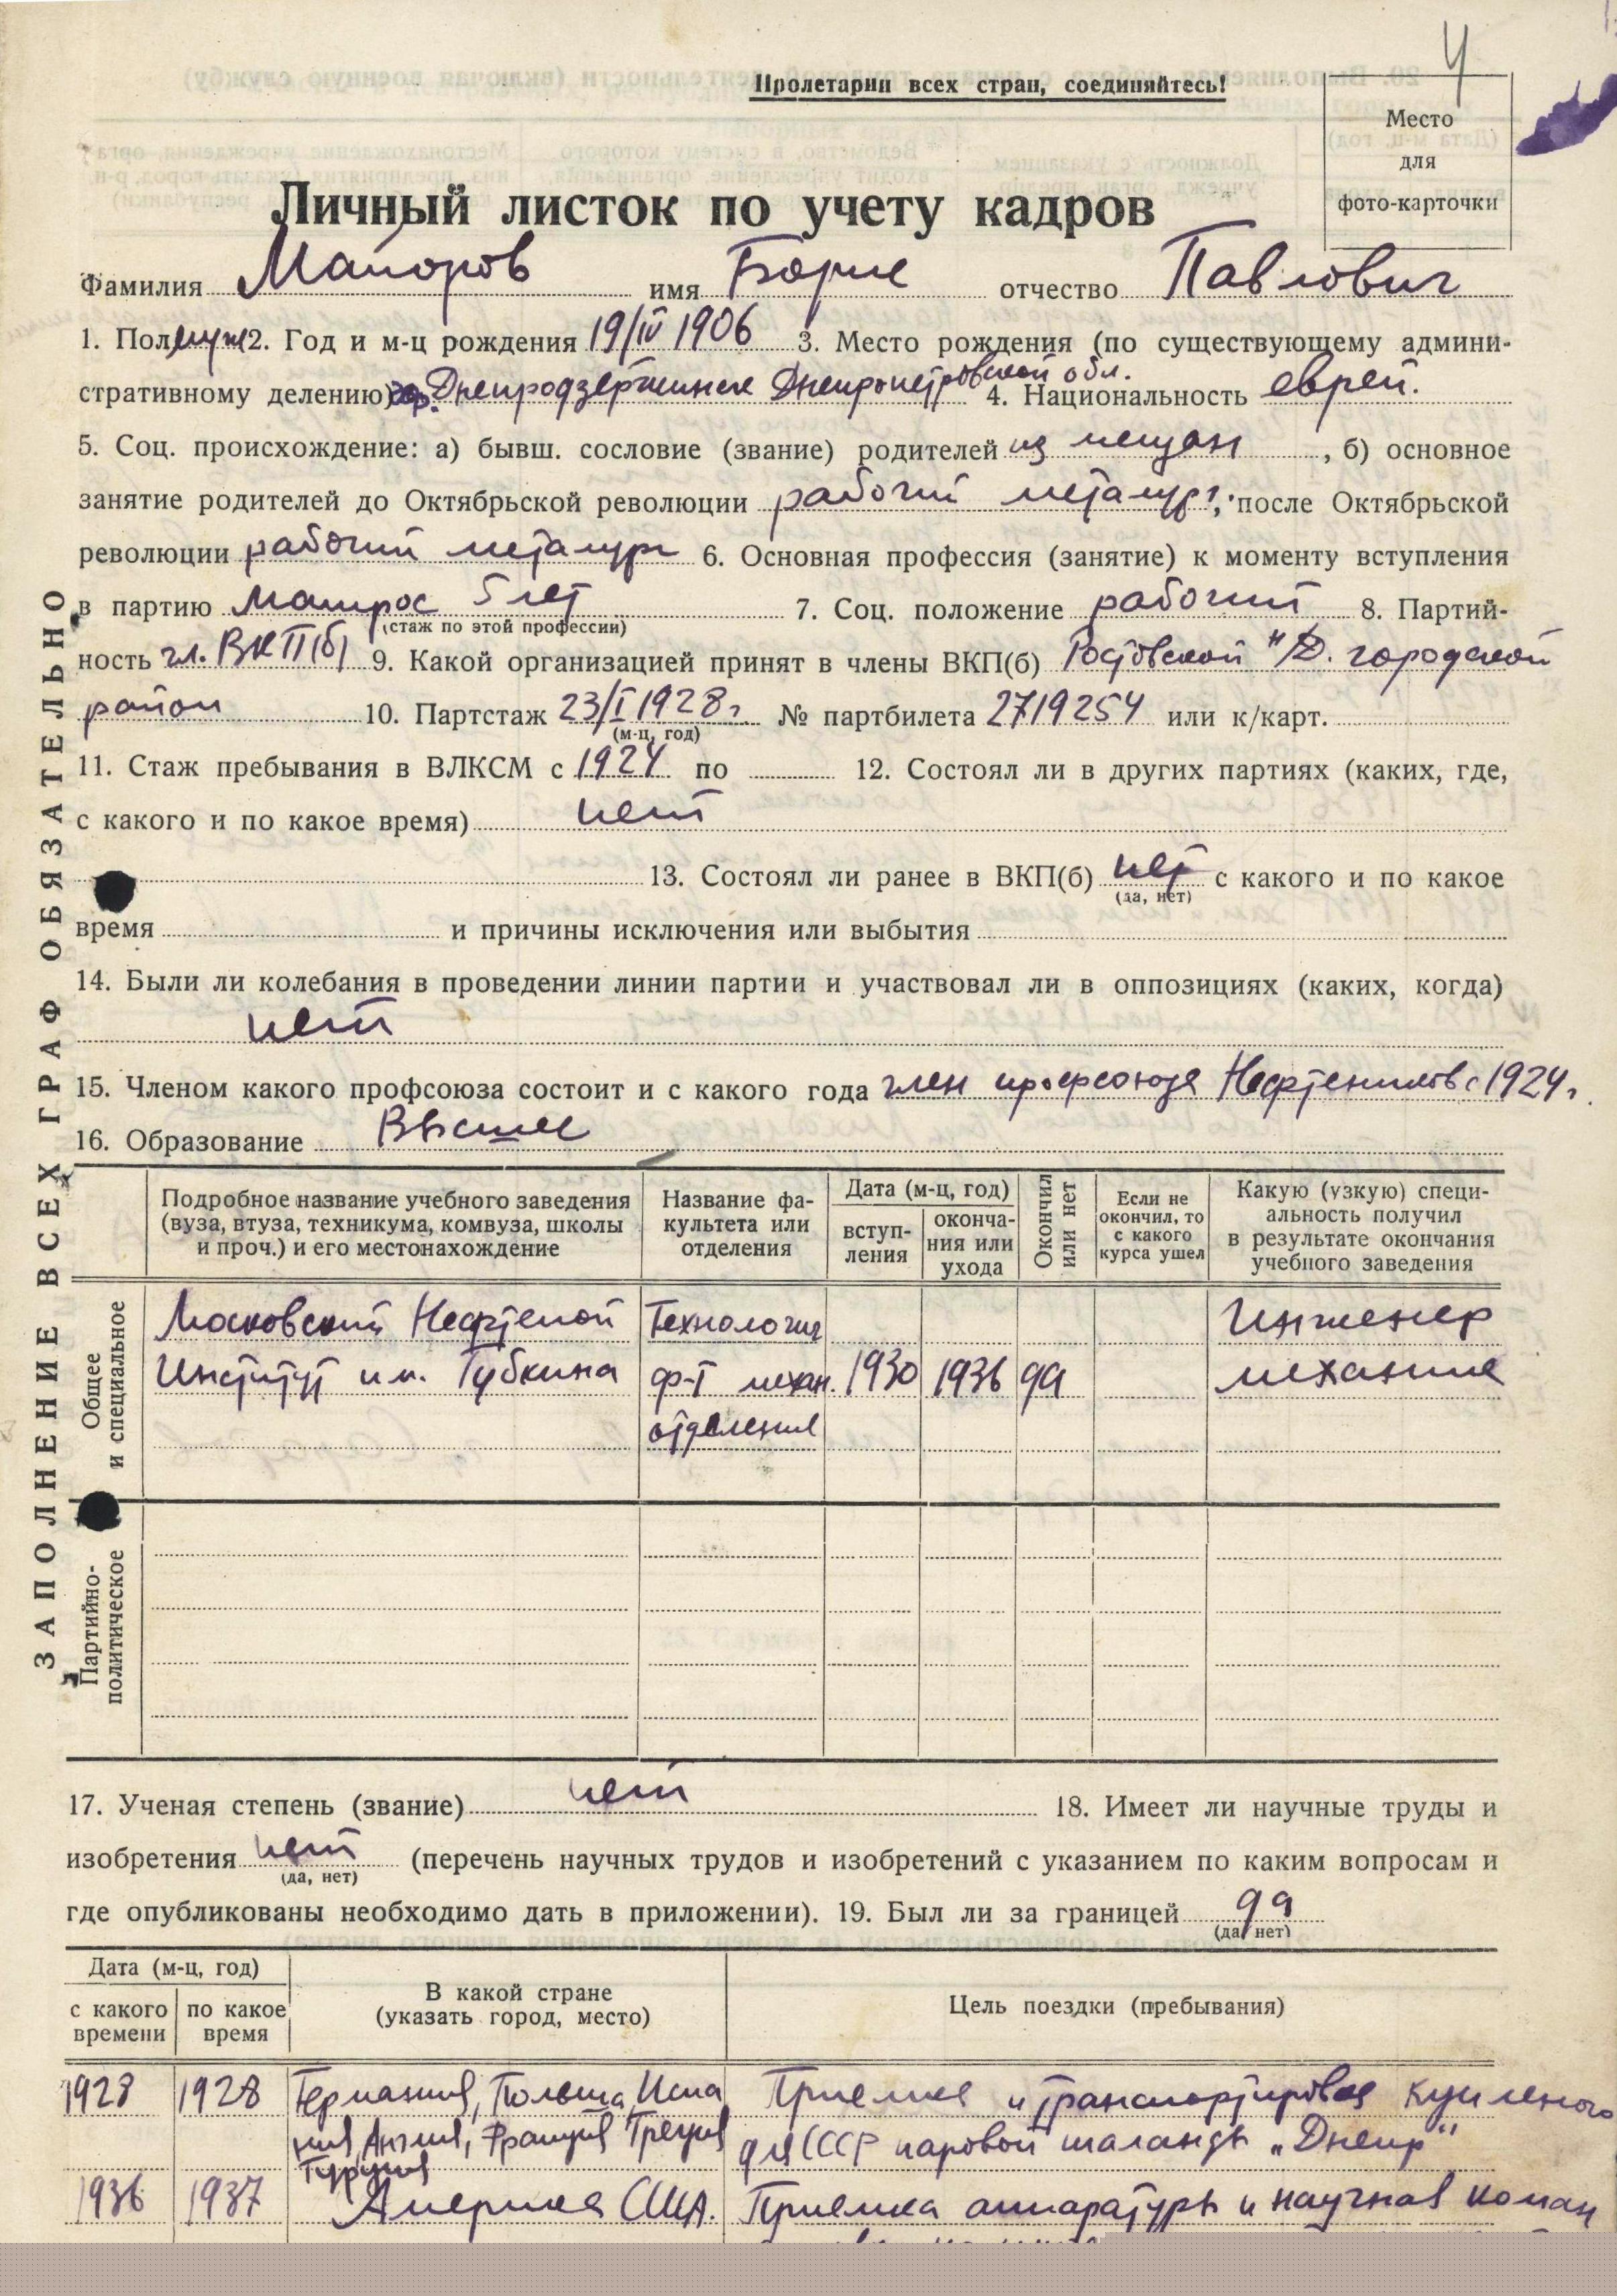 4
Пролетарии всех стран, соединяйтесь!
Место
для
фото-карточки
Личный листок по учету кадров
Фамилия Майоров имя Борис отчество Павлович
1. Пол муж 2. Год и м-ц рождения 19/IV 1906 3. Место рождения (по существующему админи-
стративному делению) гор. Днепродзержинск Днепропетровской обл. 4. Национальность еврей.
5. Соц. происхождение: а) бывш. сословие (звание) родителей из мещан, б) основное
занятие родителей до Октябрьской революции рабочий металург; после Октябрьской
революции рабочий металург 6. Основная профессия (занятие) к моменту вступления
в партию Матрос 5 лет 7. Соц. положение рабочий 8. Партий-
(стаж по этой профессии)
ность чл. ВКП(б) 9. Какой организацией принят в члены ВКП(б) Ростовской н/Д. городской
район 10. Партстаж 23/I 1928 г. № партбилета 2719254 или к/карт.
(м-ц, год)
11. Стаж пребывания в ВЛКСМ с 1924 по 12. Состоял ли в других партиях (каких, где,
с какого и по какое время) нет
13. Состоял ли ранее в ВКП(б) нет с какого и по какое
(да, нет)
время и причины исключения или выбытия
14. Были ли колебания в проведении линии партии и участвовал ли в оппозициях (каких, когда)
нет
15. Членом какого профсоюза состоит и с какого года член профсоюза Нефтеников с 1924 г.
16. Образование Высшее
ЗАПОЛНЕНИЕ ВСЕХ ГРАФ ОБЯЗАТЕЛЬНО
Подробное название учебного заведения (вуза, втуза, техникума, комвуза, школы и проч.) и его местонахождение
Название факультета или отделения
Дата (м-ц, год)
вступ-
ления
оконча-
ния или
ухода
Окончил
или нет
Если не
окончил, то
с какого
курса ушел
Какую (узкую) специ-
альность получил
в результате окончания
учебного заведения
Общее
и специальное
Московский Нефтеной Технология Инженер
Институт им. Губкина ф-т механ. 1930 1936 да механик
отделения
Партийно-
политическое
17. Ученая степень (звание) нет 18. Имеет ли научные труды и
изобретения нет (перечень научных трудов и изобретений с указанием по каким вопросам и
(да, нет)
где опубликованы необходимо дать в приложении). 19. Был ли за границей да
(да, нет)
Дата (м-ц, год)
с какого
времени
по какое
время
В какой стране
(указать город, место)
Цель поездки (пребывания)
1928 1928 Германия, Польша, Испа Приемка и транспортировка купленого
ния, Англия, Франция Греция для СССР паровой шаланды „Днепр"
Турция
1936 1937 Америка США. Приемка аппаратуры и научная коман